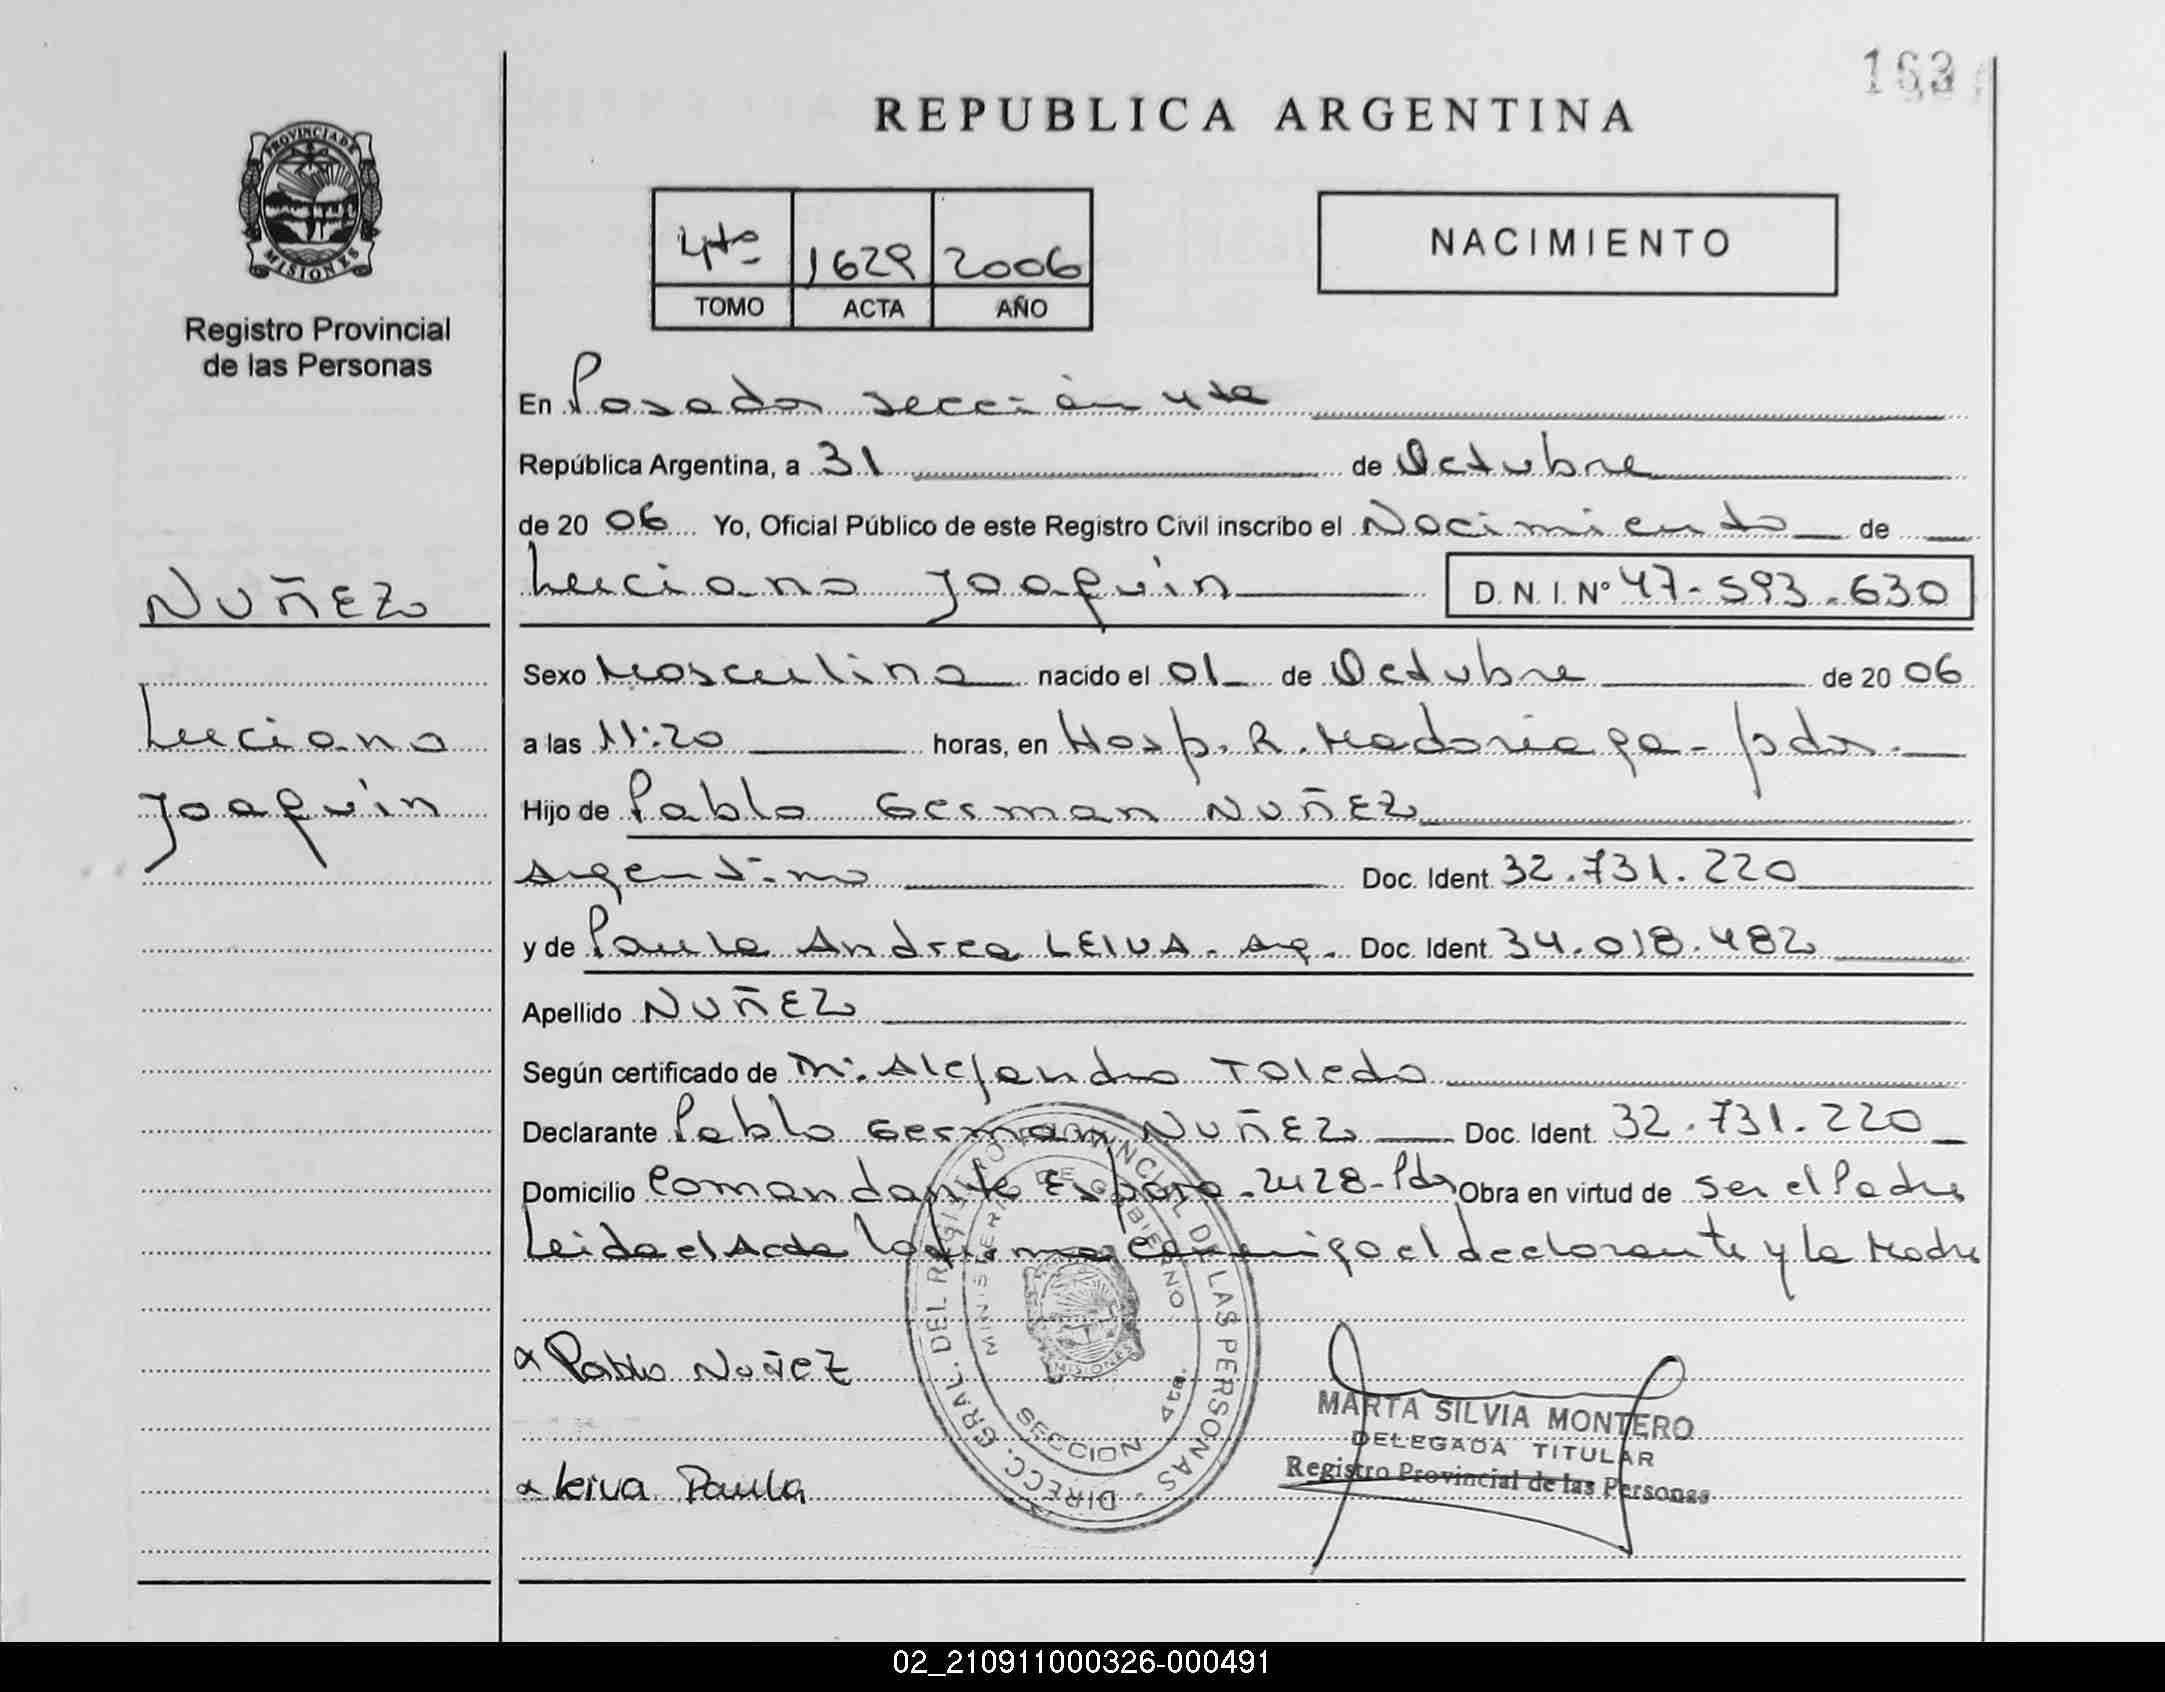 163
REPUBLICA ARGENTINA
PROVINCIA DE
MISIONES
Registro Provincial
de las Personas
4to 1629 2006
TOMO ACTA AÑO
NACIMIENTO
En Posadas sección 4ta
República Argentina, a 31 de Octubre
de 2006 Yo, Oficial Público de este Registro Civil inscribo el Nacimiento de
Luciano Joaquin D.N.I. Nº 47-593-630
NUÑEZ
Luciano
Joaquin
Sexo Masculino nacido el 01 de Octubre de 2006
a las 11:20 horas, en Hosp. R. Madariaga - pdas.
Hijo de Pablo German NUÑEZ
Argentino Doc. Ident. 32.731.220
y de Paula Andrea LEIVA - Arg. Doc. Ident. 34.018.482
Apellido NUÑEZ
Según certificado de Alejandro Toledo
Declarante Pablo German NUÑEZ Doc. Ident. 32.731.220
Domicilio Comandante Espora - 2428 - Pdas Obra en virtud de ser el Padre
Leida el Acta la firma conmigo el declarante y la Madre
x Pablo Nuñez
x Leiva Paula
DIRECC. GRAL. DEL REGISTRO PROVINCIAL DE LAS PERSONAS
MINISTERIO DE GOBIERNO
MISIONES
SECCION 4ta.
MARTA SILVIA MONTERO
DELEGADA TITULAR
Registro Provincial de las Personas
02_210911000326-000491